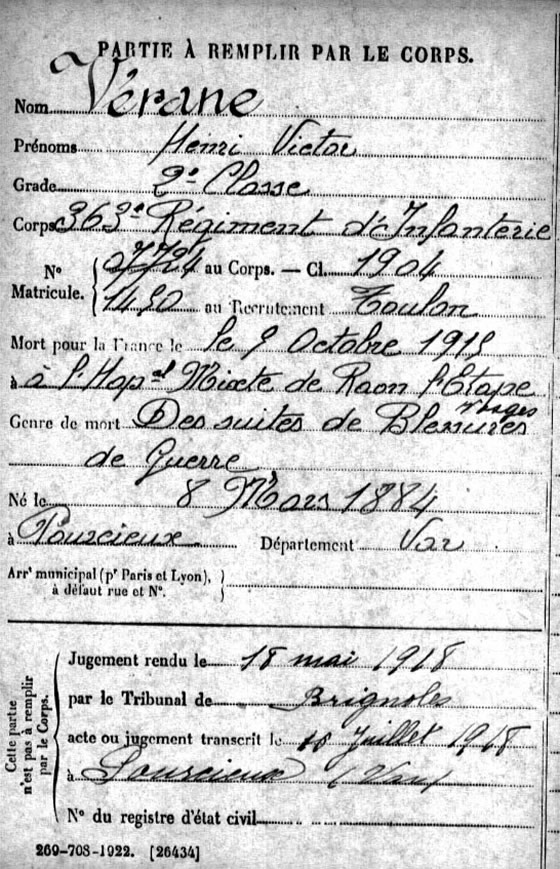 PARTIE À REMPLIR PAR LE CORPS.
Nom Vérane
Prénoms Henri Victor
Grade 2e Classe
Corps 363e Régiment d'Infanterie
N° Matricule. 07724 au Corps. — Cl. 1904
1450 au Recrutement Toulon
Mort pour la France le le 9 Octobre 1915
à à l'Hopal Mixte de Raon l'Etape
Vosges
Genre de mort Des suites de Blessures
de Guerre
Né le 8 Mars 1884
à Pourcieux Département Var
Arrt municipal (pr Paris et Lyon),
à défaut rue et N°.
Cette partie
n'est pas à remplir
par le Corps.
Jugement rendu le 18 mai 1918
par le Tribunal de Brignoles
acte ou jugement transcrit le Juillet 1918
à Pourcieux (Var)
N° du registre d'état civil
269-708-1922. [26434]